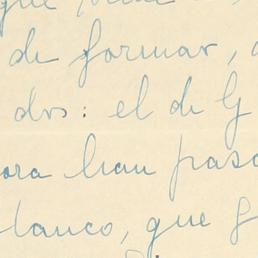 que
de formar,
dos: el de G
ora han pasa
lanco, que g